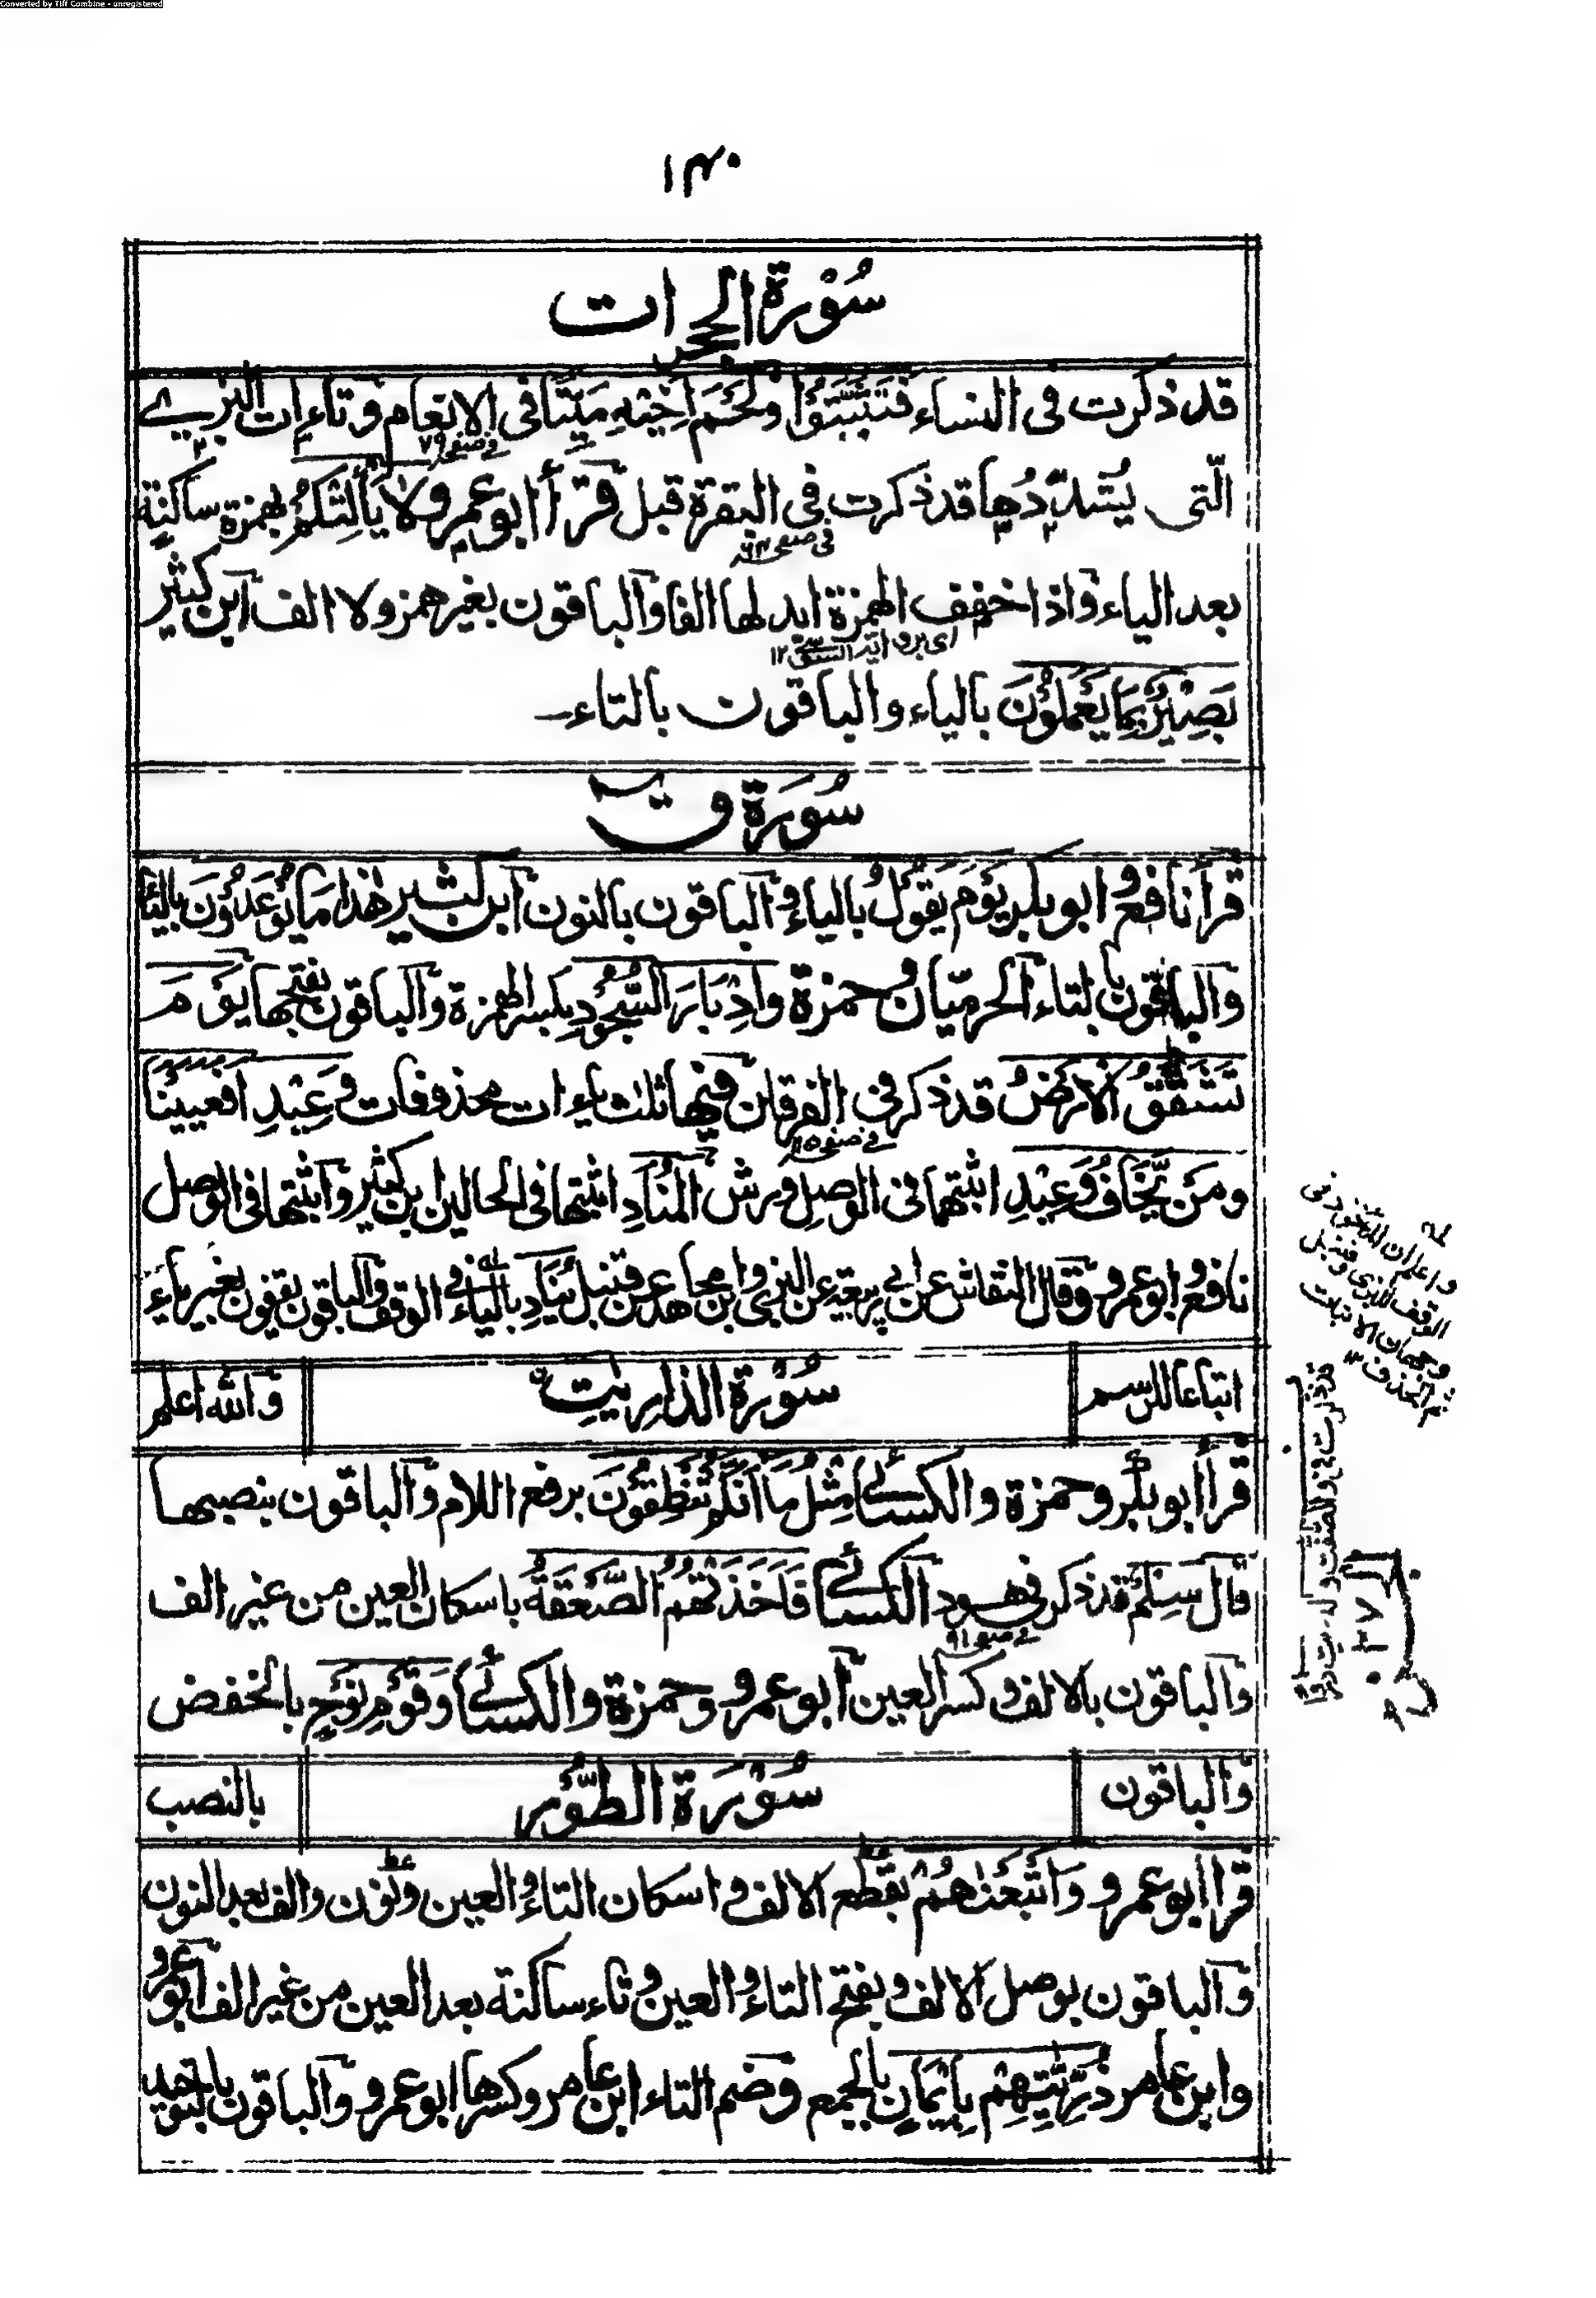 Converted by Tiff Combine - unregistered
١٤٠
سُوْرَةُ الحجرات
قد ذكرت فى النساء فَتَثَبَّتُوْا ولَحْمَ اَخِيْهِ مَيِّتًا فى الانعام وتاءات البزے
فے صفحہ ٧٩
الّتى يُشدِّدُها قد ذكرت فى البقرة قبل قرأ ابو عمرو لا يَأْلِتْكُمْ بهمزة ساكنة
فى صفحہ ٦٣
بعد الياء واذا خفف الهمزة ابدلها الفا والباقون بغير همز ولا الف ابن كثير
اى بروايته السوسى ١٢
بَصِيْرٌۢ بِمَا يَعْمَلُوْنَ بالياء والباقون بالتاء
سُوْرَة قۤ
قرأ نافع وابو بكر يَوْمَ يَقُوْلُ بالياء والباقون بالنون ابن كثير هٰذا مَا يُوْعَدُوْنَ بالياء
والباقون بالتاء الحرميّان وحمزة وَاِدْبَارَ السُّجُوْدِ بكسر الهمزة والباقون بفتحها يَوْمَ
تَشَقَّقُ الْاَرْضُ قد ذكر فى الفرقان فيها ثلث ياءات محذوفات وَعِيْدِ اَفَعَيِيْنَا
فے صفحہ ١١٥
ومَنْ يَّخَافُ وَعِيْدِ اثبتهما فى الوصل ورش الْمُنَادِ اثبتها فى الحالين ابن كثير واثبتها فى الوصل
نافع وابو عمرو وقال النقاش عن ابى ربيعة عن البزى وابن مجاهد عن قنبل يُنَادِ بالياء فى الوقف والباقون يقفون بغير ياء
اتباعا للرسم
سُوْرَةُ الذاريٰتِ
والله اعلم
قرأ ابو بكر وحمزة والكسائے مِثْلُ مَا اَنَّكُمْ تَنْطِقُوْنَ برفع اللام والباقون بنصبها
قَالَ سِلْمٌ قد ذكر فى هود الكسائے فَاَخَذَتْهُمُ الصَّعْقَةُ باسكان العين من غير الف
فے صفحہ ٩١
والباقون بالالف وكسر العين ابو عمرو وحمزة والكسائے وَقَوْمِ نُوْحٍ بالخفض
والباقون
سُوْرَةُ الطُّوْر
بالنصب
قرأ ابو عمرو وَاَتْبَعْنٰهُمْ بقطع الالف واسكان التاء والعين ونون والف بعد النون
والباقون بوصل الالف وبفتح التاء والعين وتاء ساكنة بعد العين من غير الف ابو عمرو
وابن عامر ذُرِّيّٰتِهِمْ بِاِيْمَانٍ بالجمع وضم التاء ابن عامر وكسرها ابو عمرو والباقون بالتوحيد
واعلم ان الماخوذ فى
الوقف للبزى وقنبل
وجهان الاثبات
ثم الحذف ١٢